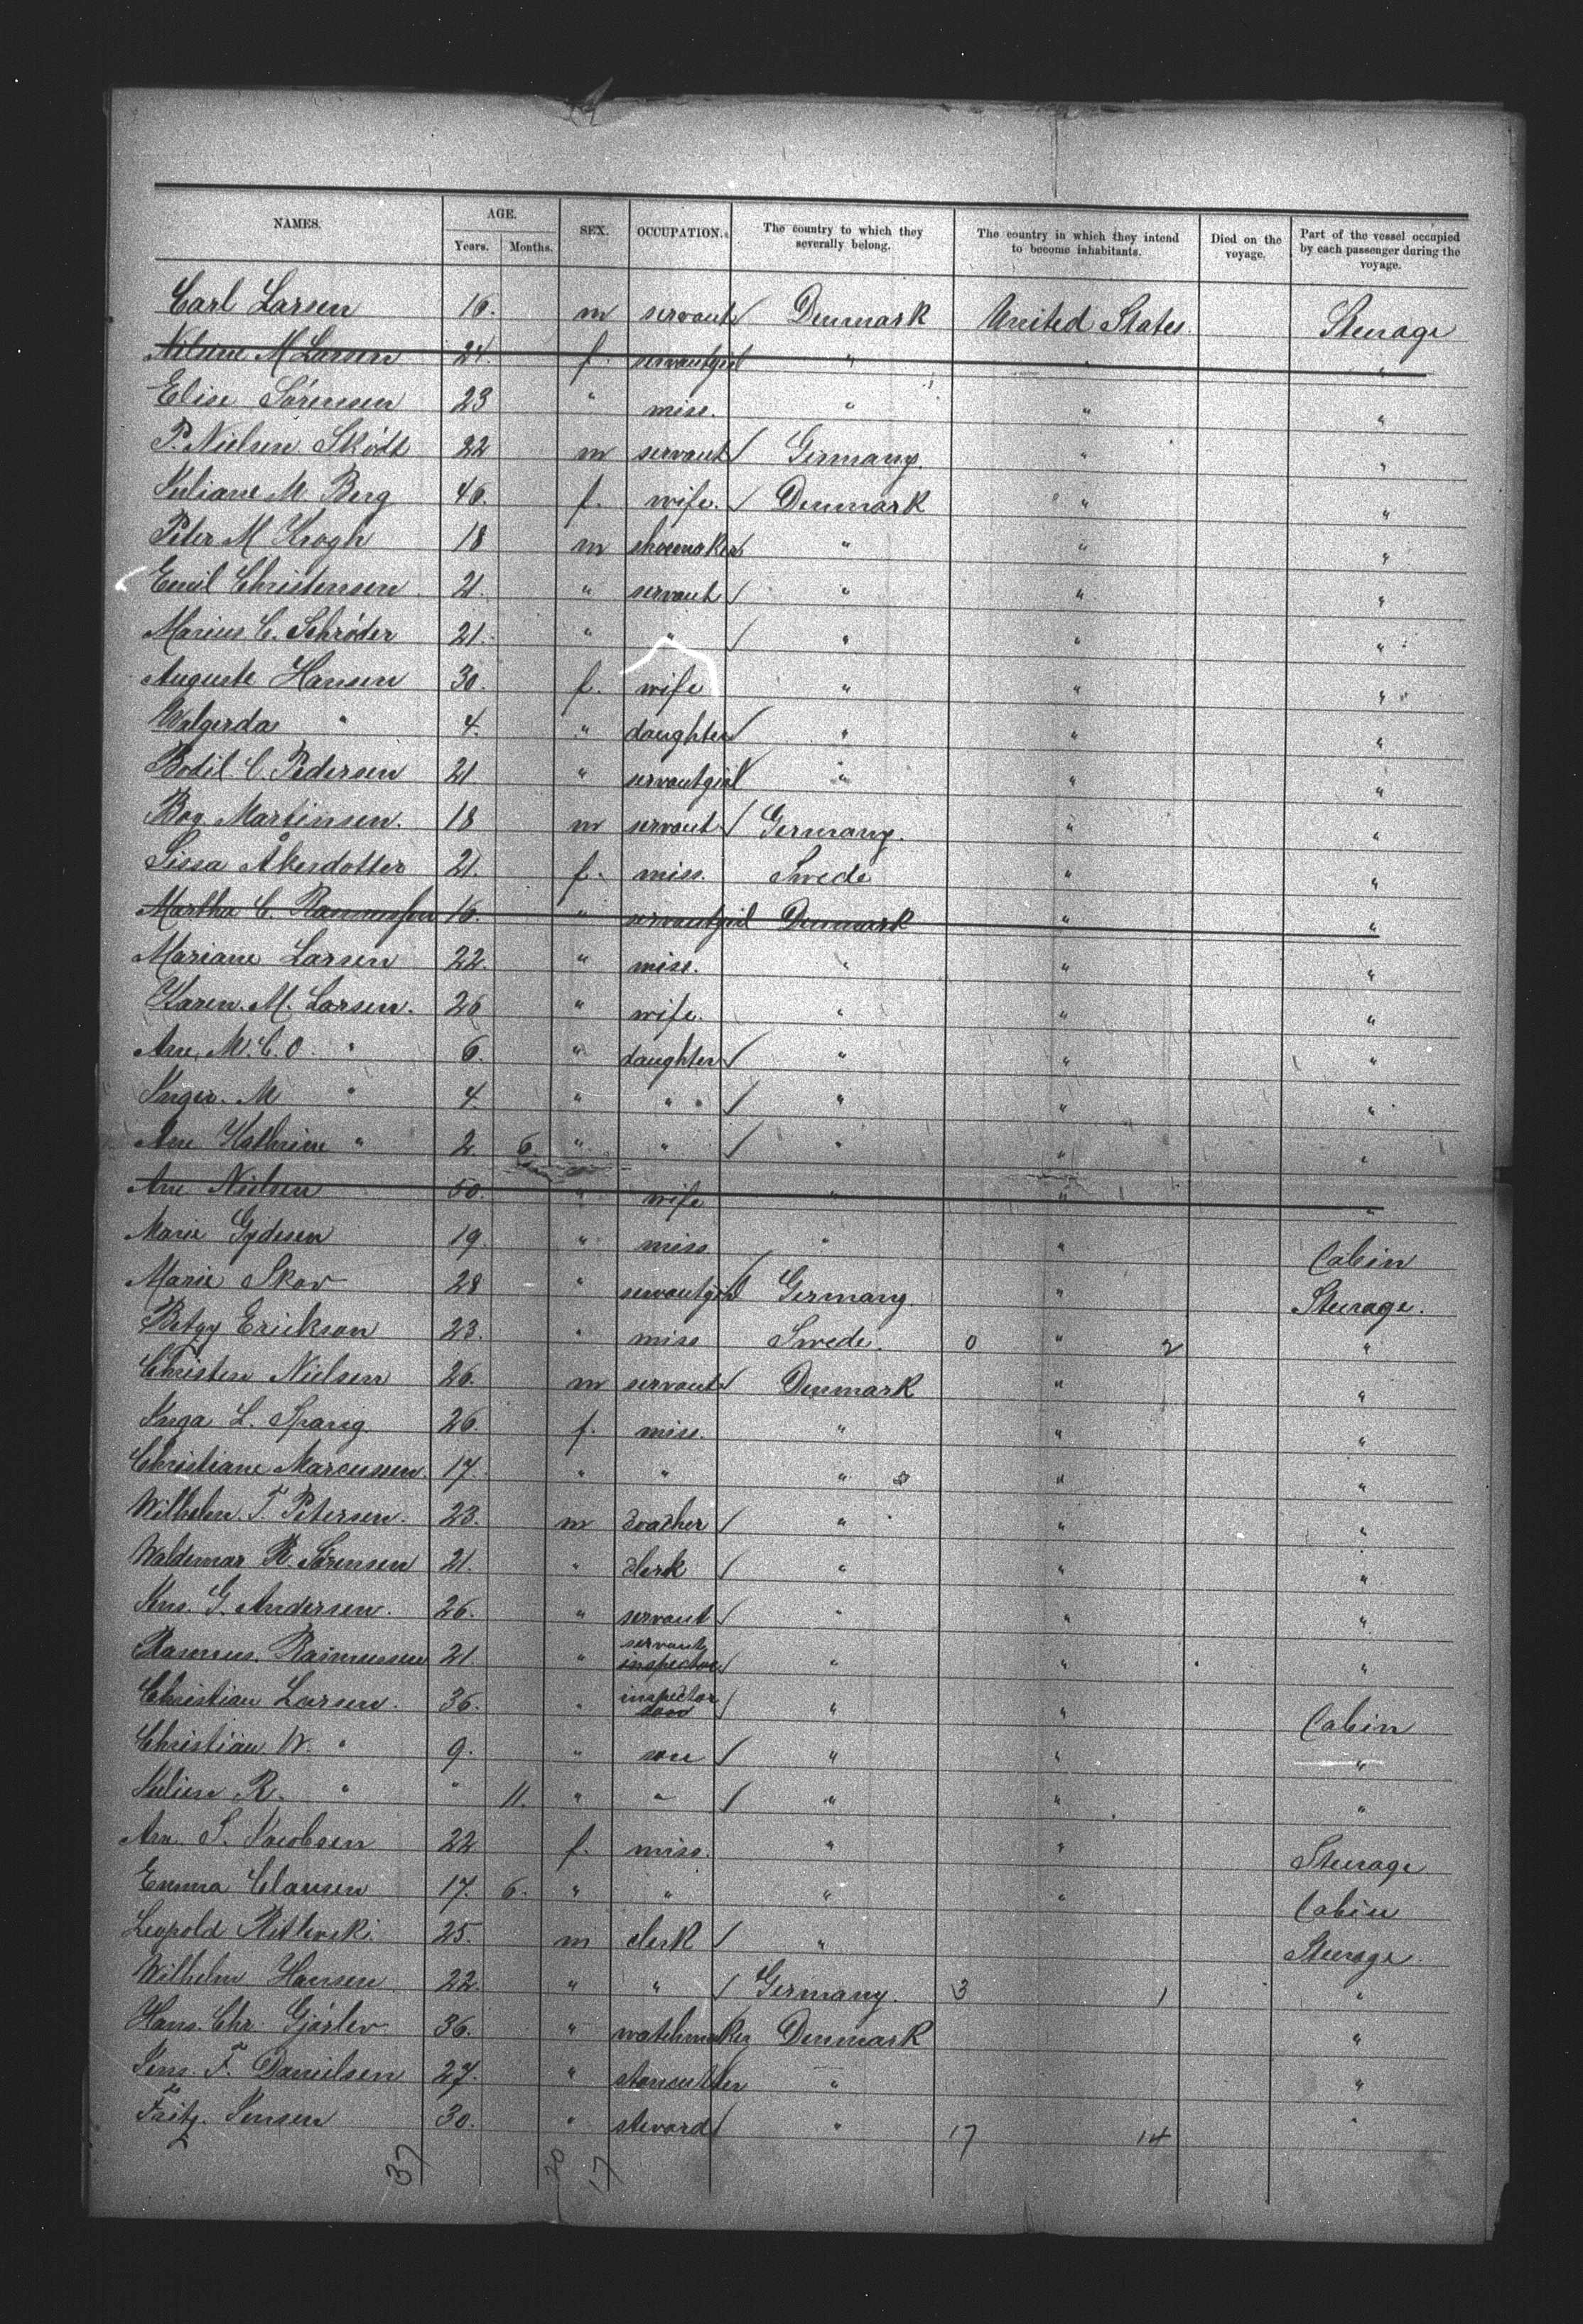 NAMES. AGE. Years. Months. SEX. OCCUPATION. The country to which they severally belong. The country in which they intend to become inhabitants. Died on the voyage. Part of the vessel occupied by each passenger during the voyage.
Carl Larsen 16. m servant / Denmark United States Steerage
M Larsen 24. f. servantgirl " " "
Elise Sörensen 23 " miss. " " "
P. Nielsen Sködt 22 m servant / Germany. " "
Juliane M. Berg 46. f. wife. / Denmark " "
Peter M Krogh 18 m shoemaker / " " "
Emil Christensen 21. " servant / " " "
Marius C. Schröder 21. " " / " " "
Auguste Hansen 30. f. wife " " "
Walgerda " 4. " daughter / " " "
Bodil C. Pedersen 21 " servantgirl " " "
Boy Martinsen. 18 m servant / Germany. " "
Sissa Åkesdotter 21. f. miss. Swede " "
Martha C. Rasmussen 16. " servantgirl Denmark " "
Mariane Larsen 22. " miss. " " "
Karen. M. Larsen. 26 " wife. " " "
Ane, M. C. O. " 6. " daughter / " " "
Inger. M " 4. " " " / " " "
Ane Kathrine " 2. 6 " " / " " "
Ane Nielsen 50. " wife " " "
Marie Gydesen 19. " miss " " Cabin
Marie Skov 28 " servantgirl / Germany " Steerage.
Betzy Erickson 23. " miss Swede. 0 " 2 "
Christen Nielsen 26. m servant / Denmark " "
Inga L. Spang 26. f. miss. " " "
Christiane Marcussen. 17. " " " " "
Wilhelm. T. Petersen. 23. m / " " "
Waldemar R. Sørensen 21. " clerk / " " "
Jens. G. Andersen. 26. " servant / " " "
Rasmus. Rasmussen 21. " servant inspector / " " "
Christian Larsen. 36. " inspector / " " Cabin
Christian W. " 9. " son / " " "
Julius R. " " 11. " " / " " "
Ane. S. Jacobsen 22 f. miss. " " Steerage
Emma Clausen 17. 6. " " " " Cabin
Leopold 25. m clerk / " Steerage.
Wilhelm Hansen 22. " " / Germany. 3 1 "
Hans. Chr. Gjörlev 36. " watchmaker Denmark "
Jens. F. Danielsen 27. " stonecutter " "
Fritz. Jensen 30. " stevard / " 17 14 "
37 20 17